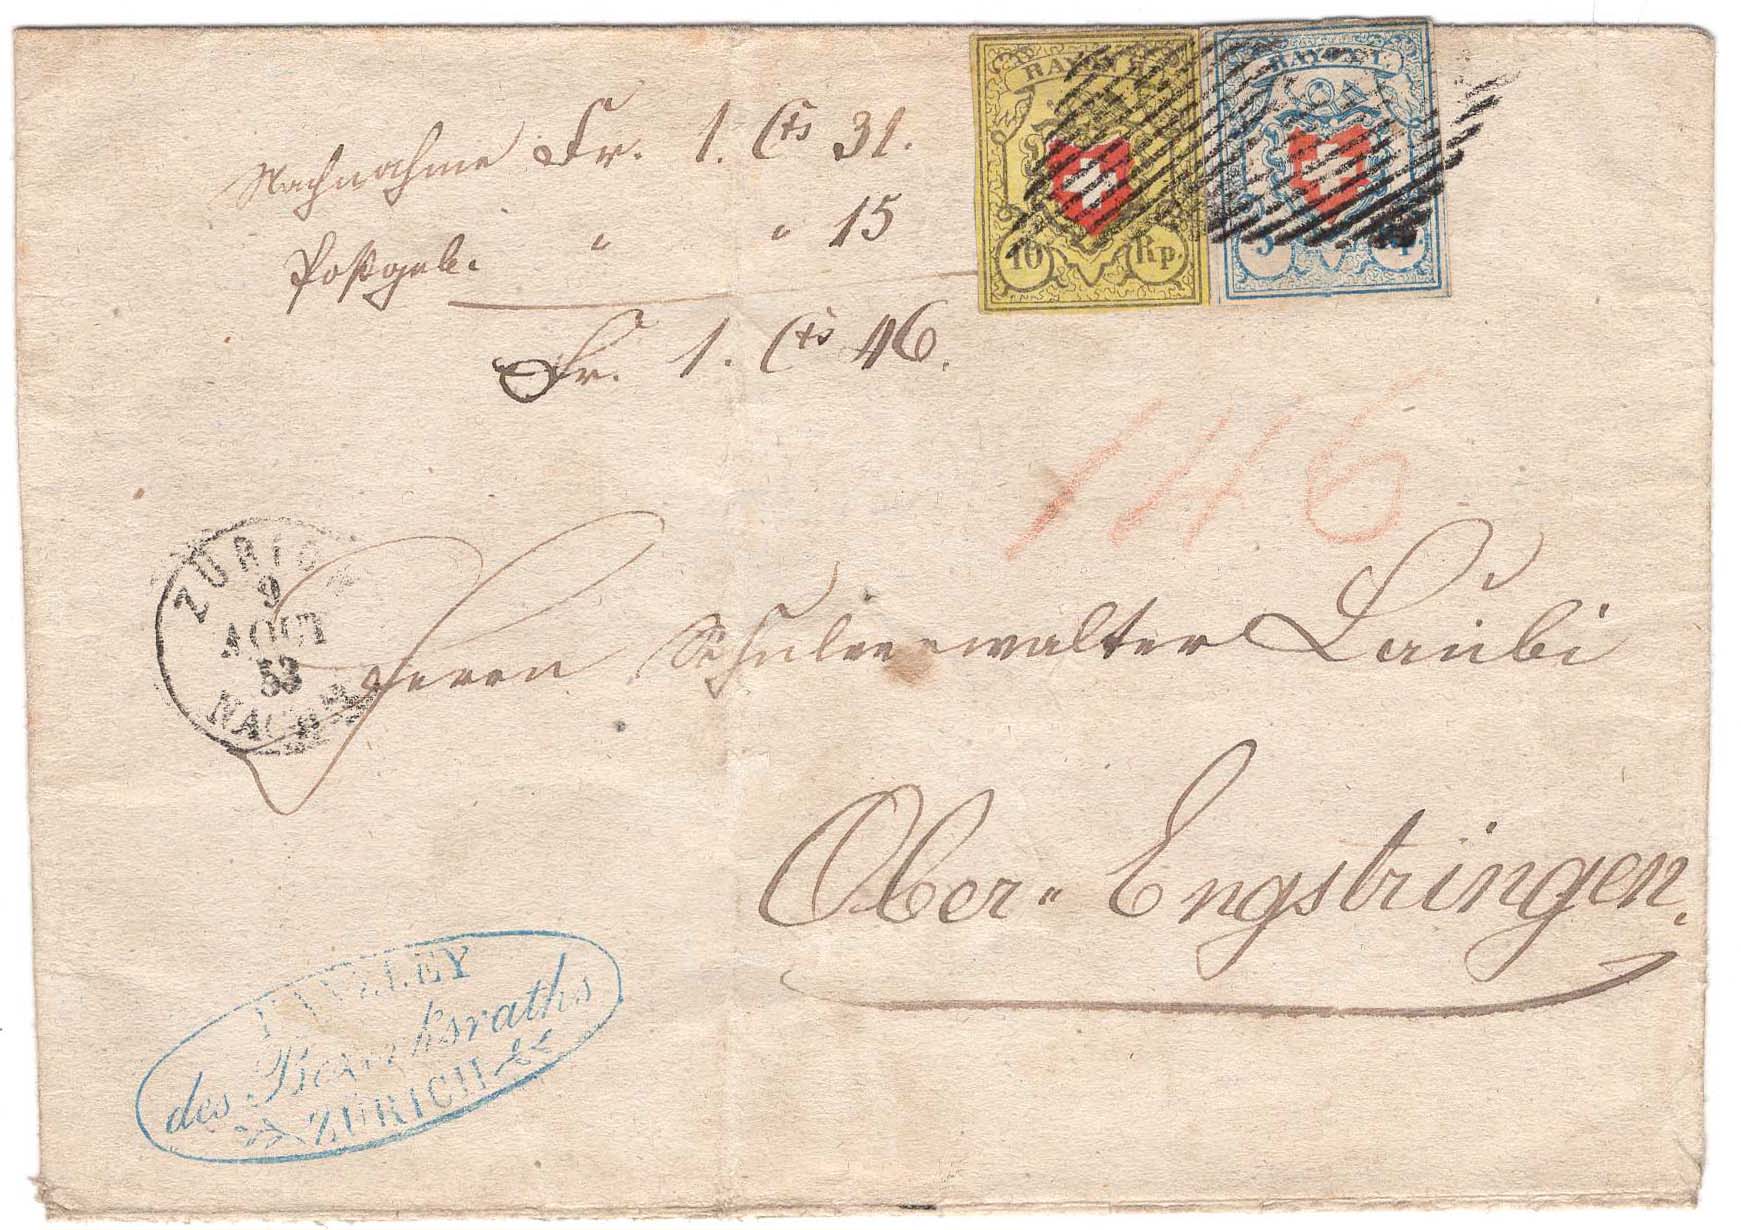 Nachnahme Fr. 1. Cts 31.
Postgeb. " " 15
Fr. 1. Cts 46.
RAYON II.
10 Rp.
RAYON I.
5 Rp.
146
ZÜRICH
9
AOUT
53
NACHM
Herrn Schulverwalter Laübi
Ober-Engstringen.
KANZLEY
des Bezirksraths
ZÜRICH